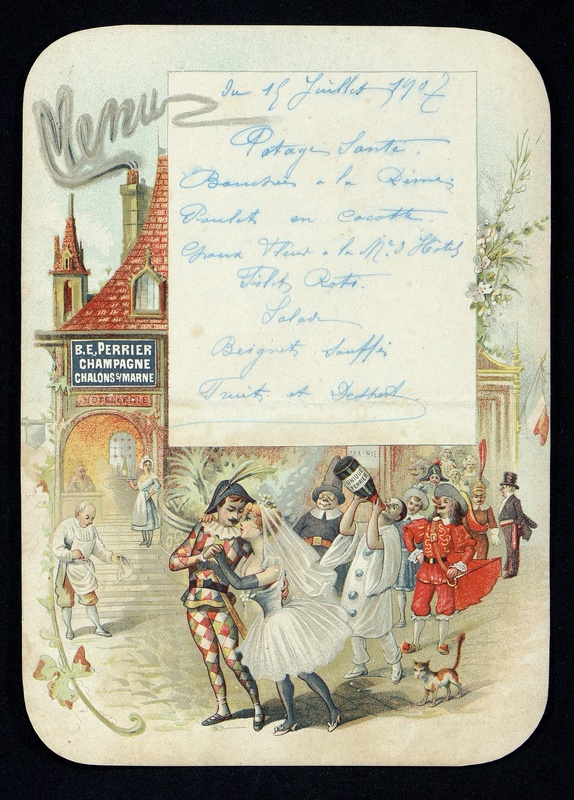 Menu
du 15 Juillet 1907
Potage Santé.
Bouchées à la
Poulet en cocotte.
à la M.e d'Hotel
Filet Roti.
Salade
Beignet Soufflé
Fruits et Dessert
B.E. PERRIER
CHAMPAGNE
CHALONS S/ MARNE
HOTELLERIE
MAIRIE
PERRIER